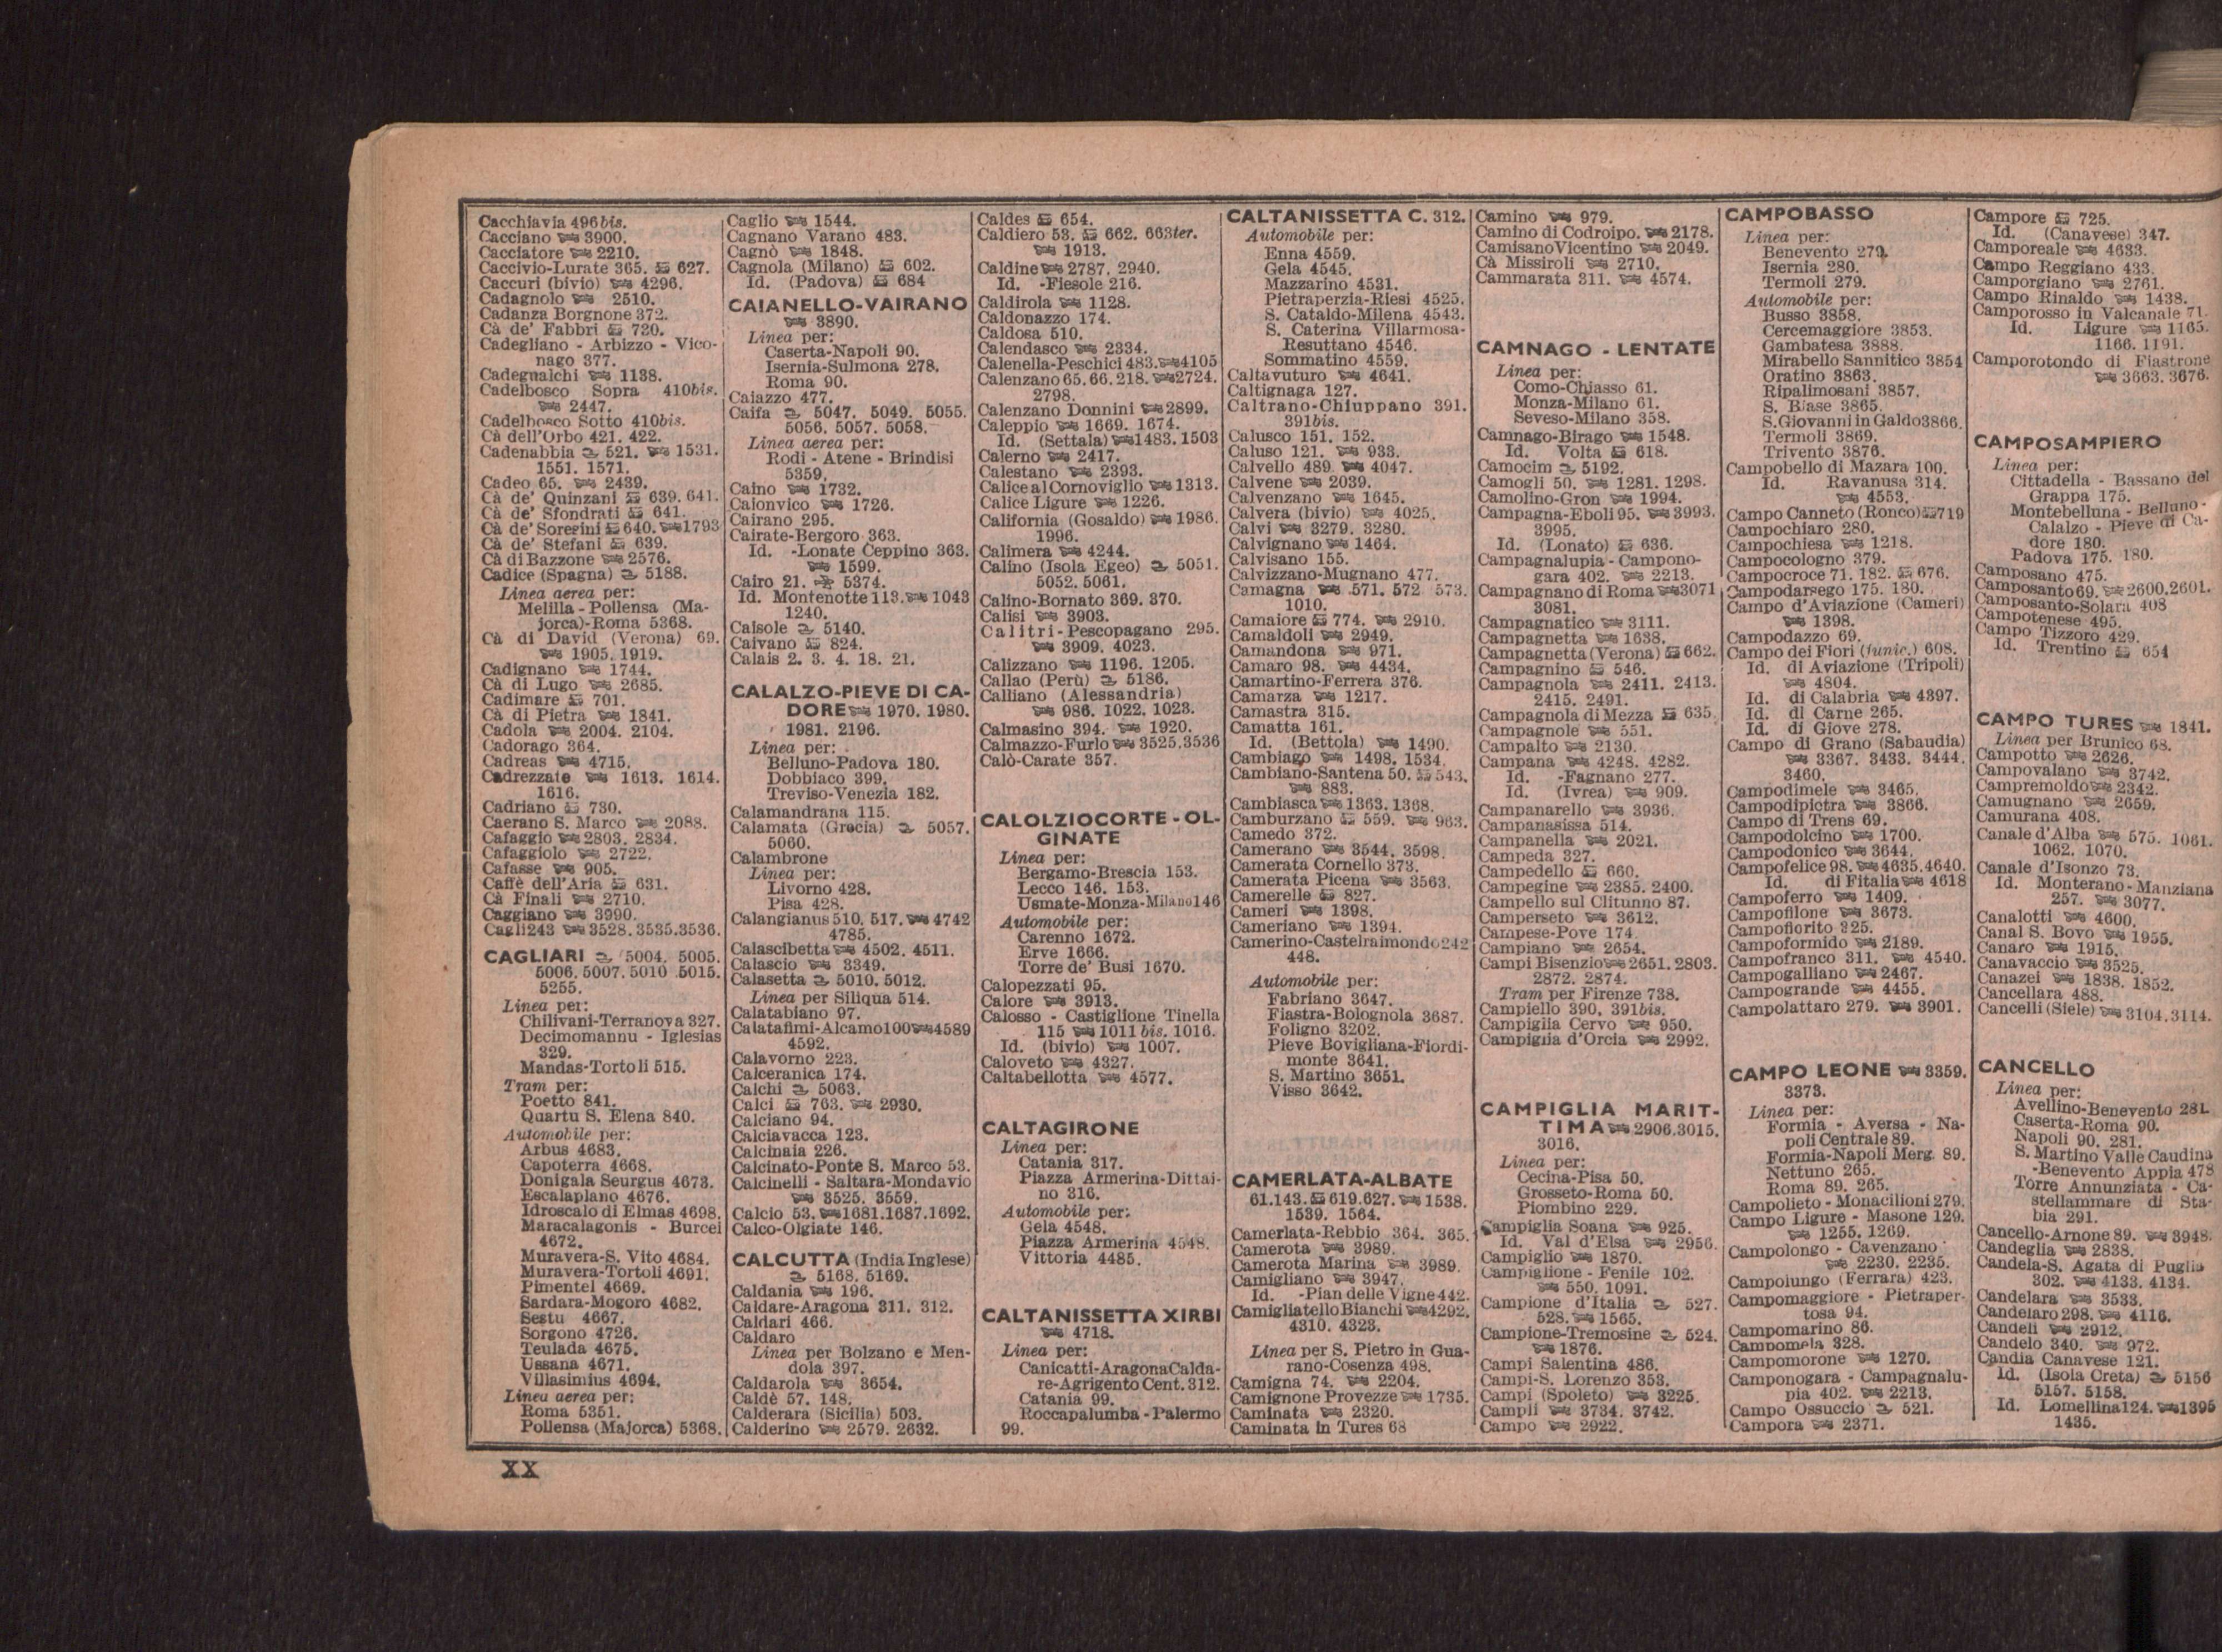 Cacchiavia 496bis.
Cacciano 3900.
Cacciatore 2210.
Caccivio-Lurate 365. 627.
Caccuri (bivio) 4296.
Cadagnolo 2510.
Cadanza Borgnone 372.
Cà de' Fabbri 730.
Cadegliano - Arbizzo - Vico-
nago 377.
Cadegualchi 1138.
Cadelbosco Sopra 410bis.
2447.
Cadelbosco Sotto 410bis.
Cà dell'Orbo 421. 422.
Cadenabbia 521. 1531.
1551. 1571.
Cadeo 65. 2439.
Cà de' Quinzani 639. 641.
Cà de' Sfondrati 641.
Cà de' Soregini 640. 1793
Cà de' Stefani 639.
Cà di Bazzone 2576.
Cadice (Spagna) 5188.
Linea aerea per:
Melilla - Pollensa (Ma-
jorca)-Roma 5368.
Cà di David (Verona) 69.
1905. 1919.
Cadignano 1744.
Cà di Lugo 2685.
Cadimare 701.
Cà di Pietra 1841.
Cadola 2004. 2104.
Cadorago 364.
Cadreas 4715.
Cadrezzate 1613. 1614.
1616.
Cadriano 730.
Caerano S. Marco 2088.
Cafaggio 2803. 2834.
Cafaggiolo 2722.
Cafasse 905.
Caffè dell'Aria 631.
Cà Finali 2710.
Caggiano 3990.
Cagli 243 3528. 3535. 3536.
CAGLIARI 5004. 5005.
5006. 5007. 5010 5015.
5255.
Linea per:
Chilivani-Terranova 327.
Decimomannu - Iglesias
329.
Mandas-Tortoli 515.
Tram per:
Poetto 841.
Quartu S. Elena 840.
Automobile per:
Arbus 4683.
Capoterra 4668.
Donigala Seurgus 4673.
Escalaplano 4676.
Idroscalo di Elmas 4698.
Maracalagonis - Burcei
4672.
Muravera-S. Vito 4684.
Muravera-Tortoli 4691.
Pimentel 4669.
Sardara-Mogoro 4682.
Sestu 4667.
Sorgono 4726.
Teulada 4675.
Ussana 4671.
Villasimius 4694.
Linea aerea per:
Roma 5351.
Pollensa (Majorca) 5368.
Caglio 1544.
Cagnano Varano 483.
Cagnò 1848.
Cagnola (Milano) 602.
Id. (Padova) 684
CAIANELLO-VAIRANO
3890.
Linea per:
Caserta-Napoli 90.
Isernia-Sulmona 278.
Roma 90.
Caiazzo 477.
Caifa 5047. 5049. 5055.
5056. 5057. 5058.
Linea aerea per:
Rodi - Atene - Brindisi
5359.
Caino 1732.
Caionvico 1726.
Cairano 295.
Cairate-Bergoro 363.
Id. -Lonate Ceppino 363.
1599.
Cairo 21. 5374.
Id. Montenotte 113. 1043
1240.
Caisole 5140.
Caivano 824.
Calais 2. 3. 4. 18. 21.
CALALZO-PIEVE DI CA-
DORE 1970. 1980.
1981. 2196.
Linea per:
Belluno-Padova 180.
Dobbiaco 399.
Treviso-Venezia 182.
Calamandrana 115.
Calamata (Grecia) 5057.
5060.
Calambrone
Linea per:
Livorno 428.
Pisa 428.
Calangianus 510. 517. 4742
4785.
Calascibetta 4502. 4511.
Calascio 3349.
Calasetta 5010. 5012.
Linea per Siliqua 514.
Calatabiano 97.
Calatafimi-Alcamo 100 4589
4592.
Calavorno 223.
Calceranica 174.
Calchi 5063.
Calci 763. 2930.
Calciano 94.
Calciavacca 123.
Calcinaia 226.
Calcinato-Ponte S. Marco 53.
Calcinelli - Saltara-Mondavio
3525. 3559.
Calcio 53. 1681. 1687. 1692.
Calco-Olgiate 146.
CALCUTTA (India Inglese)
5168. 5169.
Caldania 196.
Caldare-Aragona 311. 312.
Caldari 466.
Caldaro
Linea per Bolzano e Men-
dola 397.
Caldarola 3654.
Caldè 57. 148.
Calderara (Sicilia) 503.
Calderino 2579. 2632.
Caldes 654.
Caldiero 53. 662. 663ter.
1913.
Caldine 2787. 2940.
Id. -Fiesole 216.
Caldirola 1128.
Caldonazzo 174.
Caldosa 510.
Calendasco 2334.
Calenella-Peschici 483. 4105
Calenzano 65. 66. 218. 2724.
2798.
Calenzano Donnini 2899.
Caleppio 1669. 1674.
Id. (Settala) 1483. 1503
Calerno 2417.
Calestano 2393.
Calice al Cornoviglio 1313.
Calice Ligure 1226.
California (Gosaldo) 1986.
1996.
Calimera 4244.
Calino (Isola Egeo) 5051.
5052. 5061.
Calino-Bornato 369. 370.
Calisi 3903.
Calitri-Pescopagano 295.
3909. 4023.
Calizzano 1196. 1205.
Callao (Perù) 5186.
Calliano (Alessandria)
986. 1022. 1023.
Calmasino 394. 1920.
Calmazzo-Furlo 3525. 3536
Calò-Carate 357.
CALOLZIOCORTE - OL-
GINATE
Linea per:
Bergamo-Brescia 153.
Lecco 146. 153.
Usmate-Monza-Milano 146
Automobile per:
Carenno 1672.
Erve 1666.
Torre de' Busi 1670.
Calopezzati 95.
Calore 3913.
Calosso - Castiglione Tinella
115 1011bis. 1016.
Id. (bivio) 1007.
Caloveto 4327.
Caltabellotta 4577.
CALTAGIRONE
Linea per:
Catania 317.
Piazza Armerina-Dittai-
no 316.
Automobile per:
Gela 4548.
Piazza Armerina 4548.
Vittoria 4485.
CALTANISSETTA XIRBI
4718.
Linea per:
Canicatti-Aragona Calda-
re-Agrigento Cent. 312.
Catania 99.
Roccapalumba - Palermo
99.
CALTANISSETTA C. 312.
Automobile per:
Enna 4559.
Gela 4545.
Mazzarino 4531.
Pietraperzia-Riesi 4525.
S. Cataldo-Milena 4543.
S. Caterina Villarmosa-
Resuttano 4546.
Sommatino 4559.
Caltavuturo 4641.
Caltignaga 127.
Caltrano-Chiuppano 391.
391bis.
Calusco 151. 152.
Caluso 121. 933.
Calvello 489. 4047.
Calvene 2039.
Calvenzano 1645.
Calvera (bivio) 4025.
Calvi 3279. 3280.
Calvignano 1464.
Calvisano 155.
Calvizzano-Mugnano 477.
Camagna 571. 572 573.
1010.
Camaiore 774. 2910.
Camaldoli 2949.
Camandona 971.
Camaro 98. 4434.
Camartino-Ferrera 376.
Camarza 1217.
Camastra 315.
Camatta 161.
Id. (Bettola) 1490.
Cambiago 1498. 1534.
Cambiano-Santena 50. 543.
883.
Cambiasca 1363. 1368.
Camburzano 559. 963.
Camedo 372.
Camerano 3544. 3598.
Camerata Cornello 373.
Camerata Picena 3563.
Camerelle 827.
Cameri 1398.
Cameriano 1394.
Camerino-Castelraimondo 242
448.
Automobile per:
Fabriano 3647.
Fiastra-Bolognola 3687.
Foligno 3202.
Pieve Bovigliana-Fiordi-
monte 3641.
S. Martino 3651.
Visso 3642.
CAMERLATA-ALBATE
61. 143. 619. 627. 1538.
1539. 1564.
Camerlata-Rebbio 364. 365.
Camerota 3989.
Camerota Marina 3989.
Camigliano 3947.
Id. -Pian delle Vigne 442.
Camigliatello Bianchi 4292.
4310. 4323.
Linea per S. Pietro in Gua-
rano-Cosenza 498.
Camigna 74. 2204.
Camignone Provezze 1735.
Caminata 2320.
Caminata in Tures 68
Camino 979.
Camino di Codroipo. 2178.
Camisano Vicentino 2049.
Cà Missiroli 2710.
Cammarata 311. 4574.
CAMNAGO - LENTATE
Linea per:
Como-Chiasso 61.
Monza-Milano 61.
Seveso-Milano 358.
Camnago-Birago 1548.
Id. Volta 618.
Camocim 5192.
Camogli 50. 1281. 1298.
Camolino-Gron 1994.
Campagna-Eboli 95. 3993.
3995.
Id. (Lonato) 636.
Campagnalupia - Campono-
gara 402. 2213.
Campagnano di Roma 3071
3081.
Campagnatico 3111.
Campagnetta 1638.
Campagnetta (Verona) 662.
Campagnino 546.
Campagnola 2411. 2413.
2415. 2491.
Campagnola di Mezza 635.
Campagnole 551.
Campalto 2130.
Campana 4248. 4282.
Id. -Fagnano 277.
Id. (Ivrea) 909.
Campanarello 3936.
Campanasissa 514.
Campanella 2021.
Campeda 327.
Campedello 660.
Campegine 2385. 2400.
Campello sul Clitunno 87.
Camperseto 3612.
Campese-Pove 174.
Campiano 2654.
Campi Bisenzio 2651. 2803.
2872. 2874.
Tram per Firenze 738.
Campiello 390. 391bis.
Campiglia Cervo 950.
Campiglia d'Orcia 2992.
CAMPIGLIA MARIT-
TIMA 2906. 3015.
3016.
Linea per:
Cecina-Pisa 50.
Grosseto-Roma 50.
Piombino 229.
Campiglia Soana 925.
Id. Val d'Elsa 2956.
Campiglio 1870.
Campiglione - Fenile 102.
550. 1091.
Campione d'Italia 527.
528. 1565.
Campione-Tremosine 524.
1876.
Campi Salentina 486.
Campi-S. Lorenzo 353.
Campi (Spoleto) 3225.
Campli 3734. 3742.
Campo 2922.
CAMPOBASSO
Linea per:
Benevento 279.
Isernia 280.
Termoli 279.
Automobile per:
Busso 3858.
Cercemaggiore 3853.
Gambatesa 3888.
Mirabello Sannitico 3854
Oratino 3863.
Ripalimosani 3857.
S. Biase 3865.
S. Giovanni in Galdo 3866.
Termoli 3869.
Trivento 3876.
Campobello di Mazara 100.
Id. Ravanusa 314.
4553.
Campo Canneto (Ronco) 719
Campochiaro 280.
Campochiesa 1218.
Campocologno 379.
Campocroce 71. 182. 676.
Campodarsego 175. 180.
Campo d'Aviazione (Cameri)
1398.
Campodazzo 69.
Campo dei Fiori (funic.) 608.
Id. di Aviazione (Tripoli)
4804.
Id. di Calabria 4397.
Id. di Carne 265.
Id. di Giove 278.
Campo di Grano (Sabaudia)
3367. 3433. 3444.
3460.
Campodimele 3465.
Campodipietra 3866.
Campo di Trens 69.
Campodolcino 1700.
Campodonico 3644.
Campofelice 98. 4635. 4640.
Id. di Fitalia 4618
Campoferro 1409.
Campofilone 3673.
Campofiorito 325.
Campoformido 2189.
Campofranco 311. 4540.
Campogalliano 2467.
Campogrande 4455.
Campolattaro 279. 3901.
CAMPO LEONE 3359.
3373.
Linea per:
Formia - Aversa - Na-
poli Centrale 89.
Formia-Napoli Merg. 89.
Nettuno 265.
Roma 89. 265.
Campolieto - Monacilioni 279.
Campo Ligure - Masone 129.
1255. 1269.
Campolongo - Cavenzano
2230. 2235.
Campolungo (Ferrara) 423.
Campomaggiore - Pietraper-
tosa 94.
Campomarino 86.
Campomela 328.
Campomorone 1270.
Camponogara - Campagnalu-
pia 402. 2213.
Campo Ossuccio 521.
Campora 2371.
Campore 725.
Id. (Canavese) 347.
Camporeale 4633.
Campo Reggiano 433.
Camporgiano 2761.
Campo Rinaldo 1438.
Camporosso in Valcanale 71.
Id. Ligure 1165.
1166. 1191.
Camporotondo di Fiastrone
3663. 3676.
CAMPOSAMPIERO
Linea per:
Cittadella - Bassano del
Grappa 175.
Montebelluna - Belluno -
Calalzo - Pieve di Ca-
dore 180.
Padova 175. 180.
Camposano 475.
Camposanto 69. 2600. 2601.
Camposanto-Solara 408
Campotenese 495.
Campo Tizzoro 429.
Id. Trentino 654
CAMPO TURES 1841.
Linea per Brunico 68.
Campotto 2626.
Campovalano 3742.
Campremoldo 2342.
Camugnano 2659.
Camurana 408.
Canale d'Alba 575. 1061.
1062. 1070.
Canale d'Isonzo 73.
Id. Monterano - Manziana
257. 3077.
Canalotti 4600.
Canal S. Bovo 1955.
Canaro 1915.
Canavaccio 3525.
Canazei 1838. 1852.
Cancellara 488.
Cancelli (Siele) 3104. 3114.
CANCELLO
Linea per:
Avellino-Benevento 281.
Caserta-Roma 90.
Napoli 90. 281.
S. Martino Valle Caudina
-Benevento Appia 478
Torre Annunziata - Ca-
stellammare di Sta-
bia 291.
Cancello-Arnone 89. 3948.
Candeglia 2838.
Candela-S. Agata di Puglia
302. 4133. 4134.
Candelara 3533.
Candelaro 298. 4116.
Candeli 2912.
Candelo 340. 972.
Candia Canavese 121.
Id. (Isola Creta) 5156
5157. 5158.
Id. Lomellina 124. 1395
1435.
XX